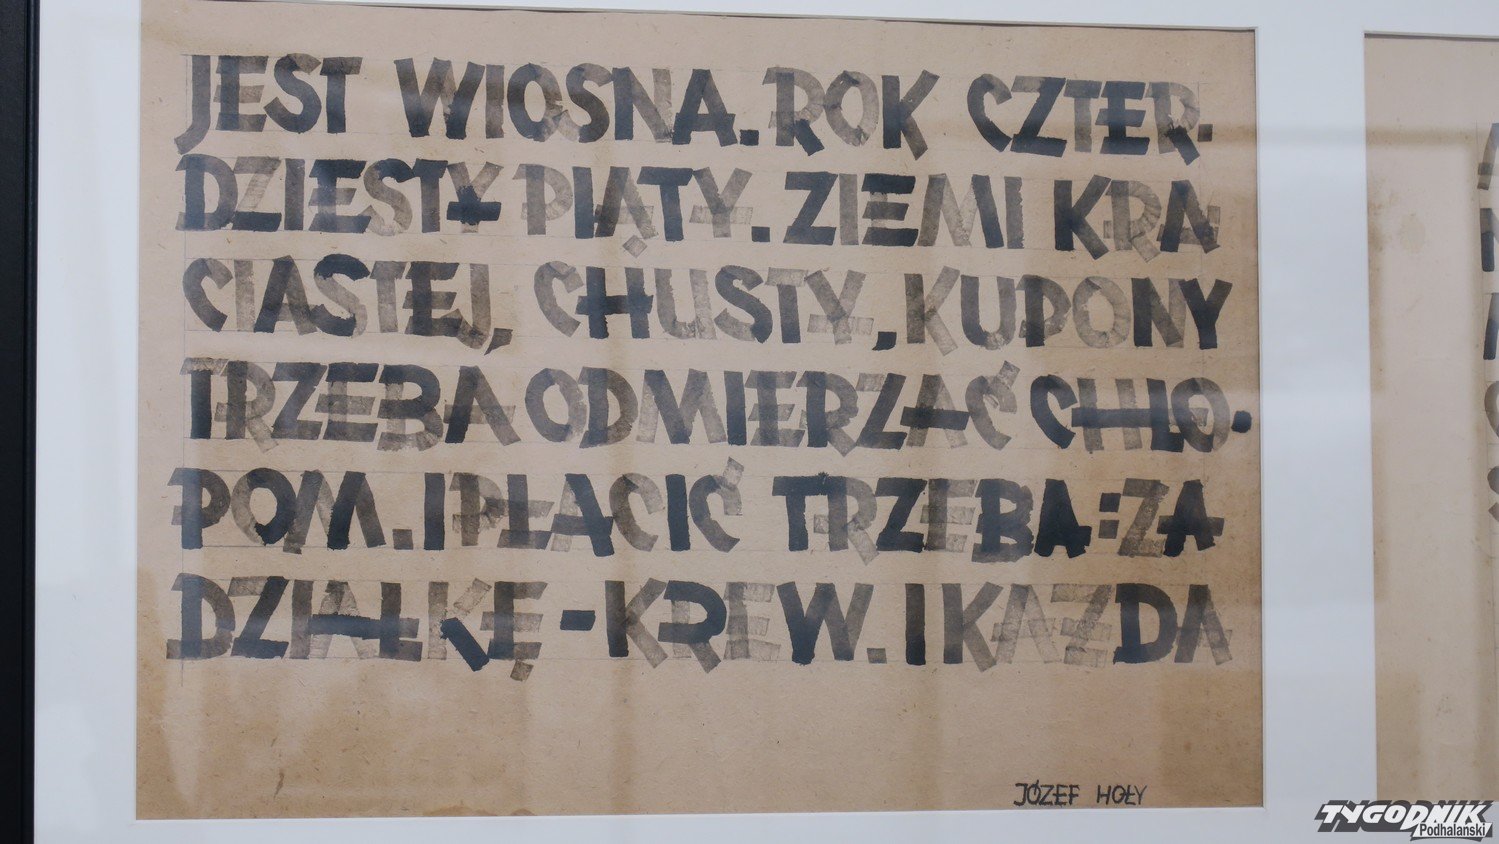 JEST WIOSNA. ROK CZTER-
DZIESTY PIĄTY. ZIEMI KRA
CIASTEJ, CHUSTY, KUPONY
TRZEBA ODMIERZAĆ CHŁO-
POM. I PŁACIĆ TRZEBA: ZA
DZIAŁKĘ - KREW. I KAZDA
JÓZEF HOŁY
TYGODNIK
Podhalański